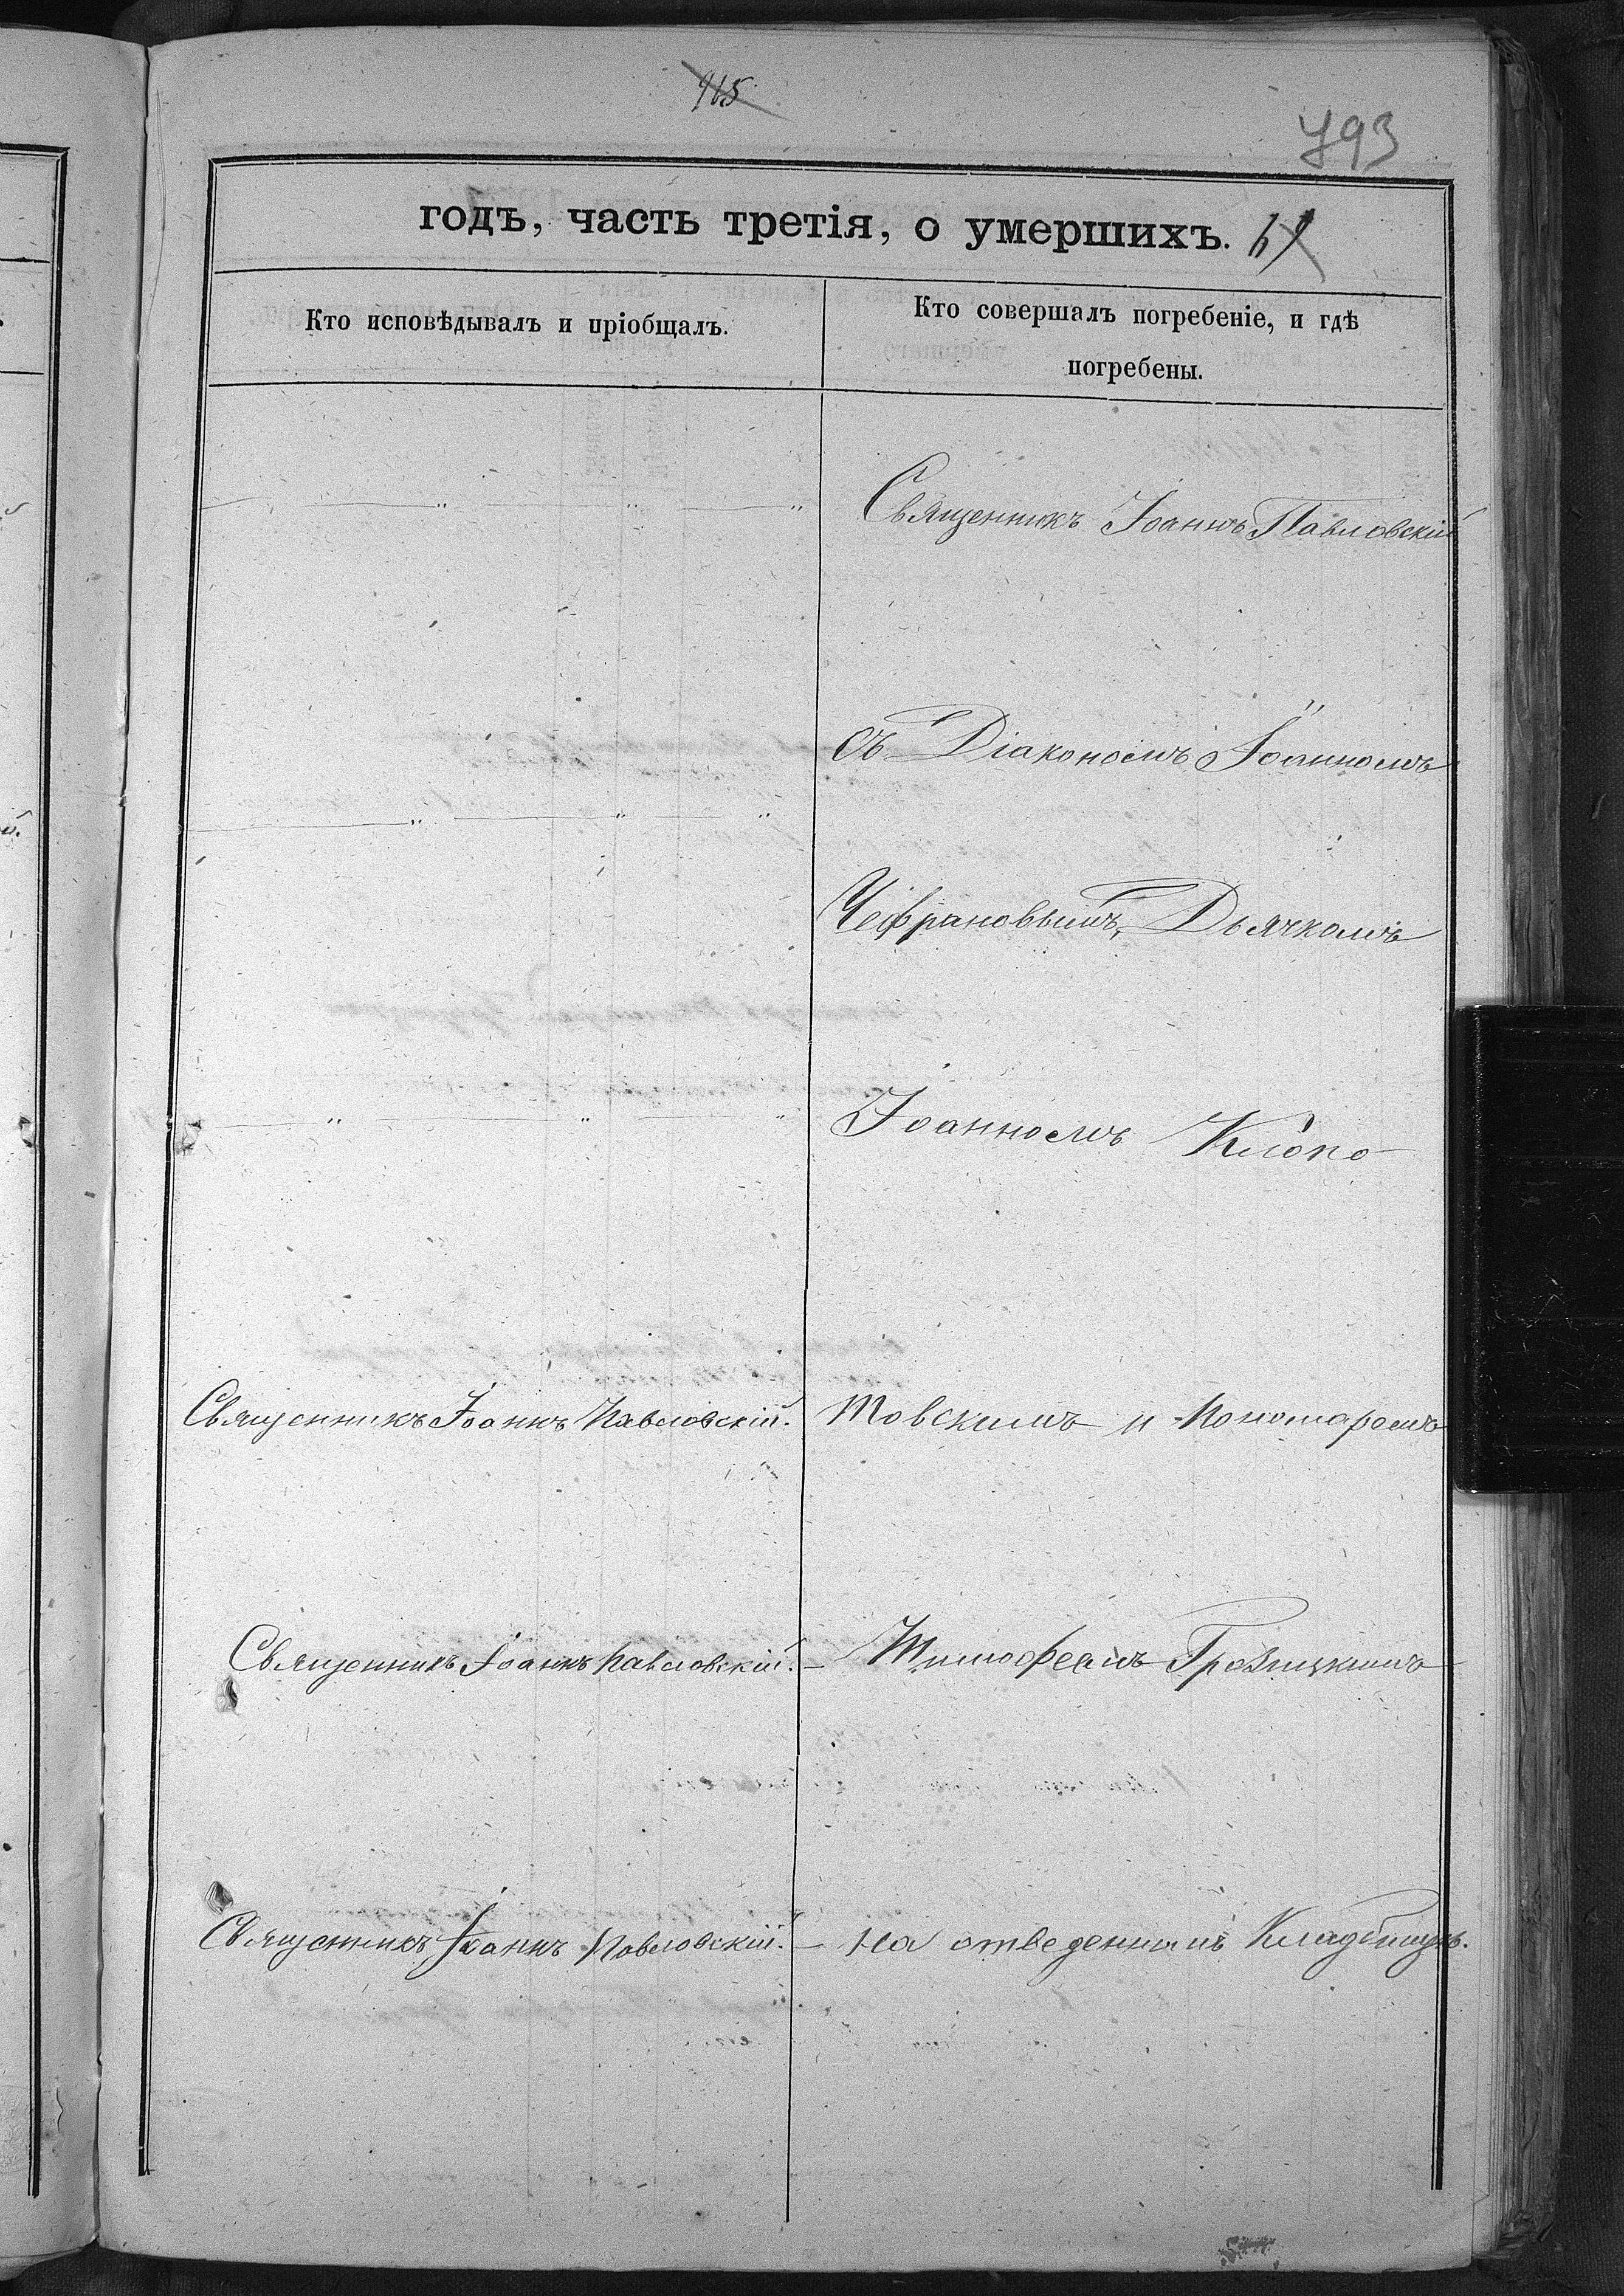 965
793
годъ, часть третія, о умершихъ. 61
Кто исповѣдывалъ и пріобщалъ.
Кто совершалъ погребеніе, и гдѣ
погребены.
Священникъ Іоаннъ Павловскій
съ Діакономъ Іоанномъ
Чефрановымъ, Дьячкомъ
Іоанномъ Клопо
Священникъ Іоаннъ Павловскій.
товскимъ и Пономаремъ
Священникъ Іоаннъ Павловскій.
Тимофеемъ Грозицкимъ
Священникъ Іоаннъ Павловскій.
на отведенномъ Кладбищѣ.